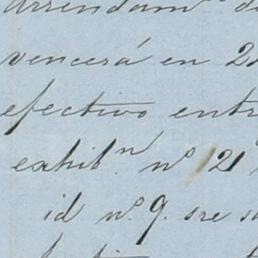 arrendam.^to de
vencerá en 2
efectivo entr
exhib.^n n.º 121
id n.º 9. sre s